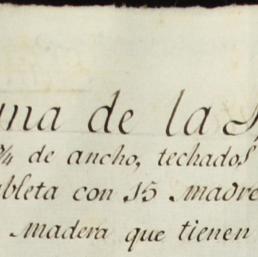 una de la
¾ de ancho, techados
tableta con 15 madre
madera que tienen